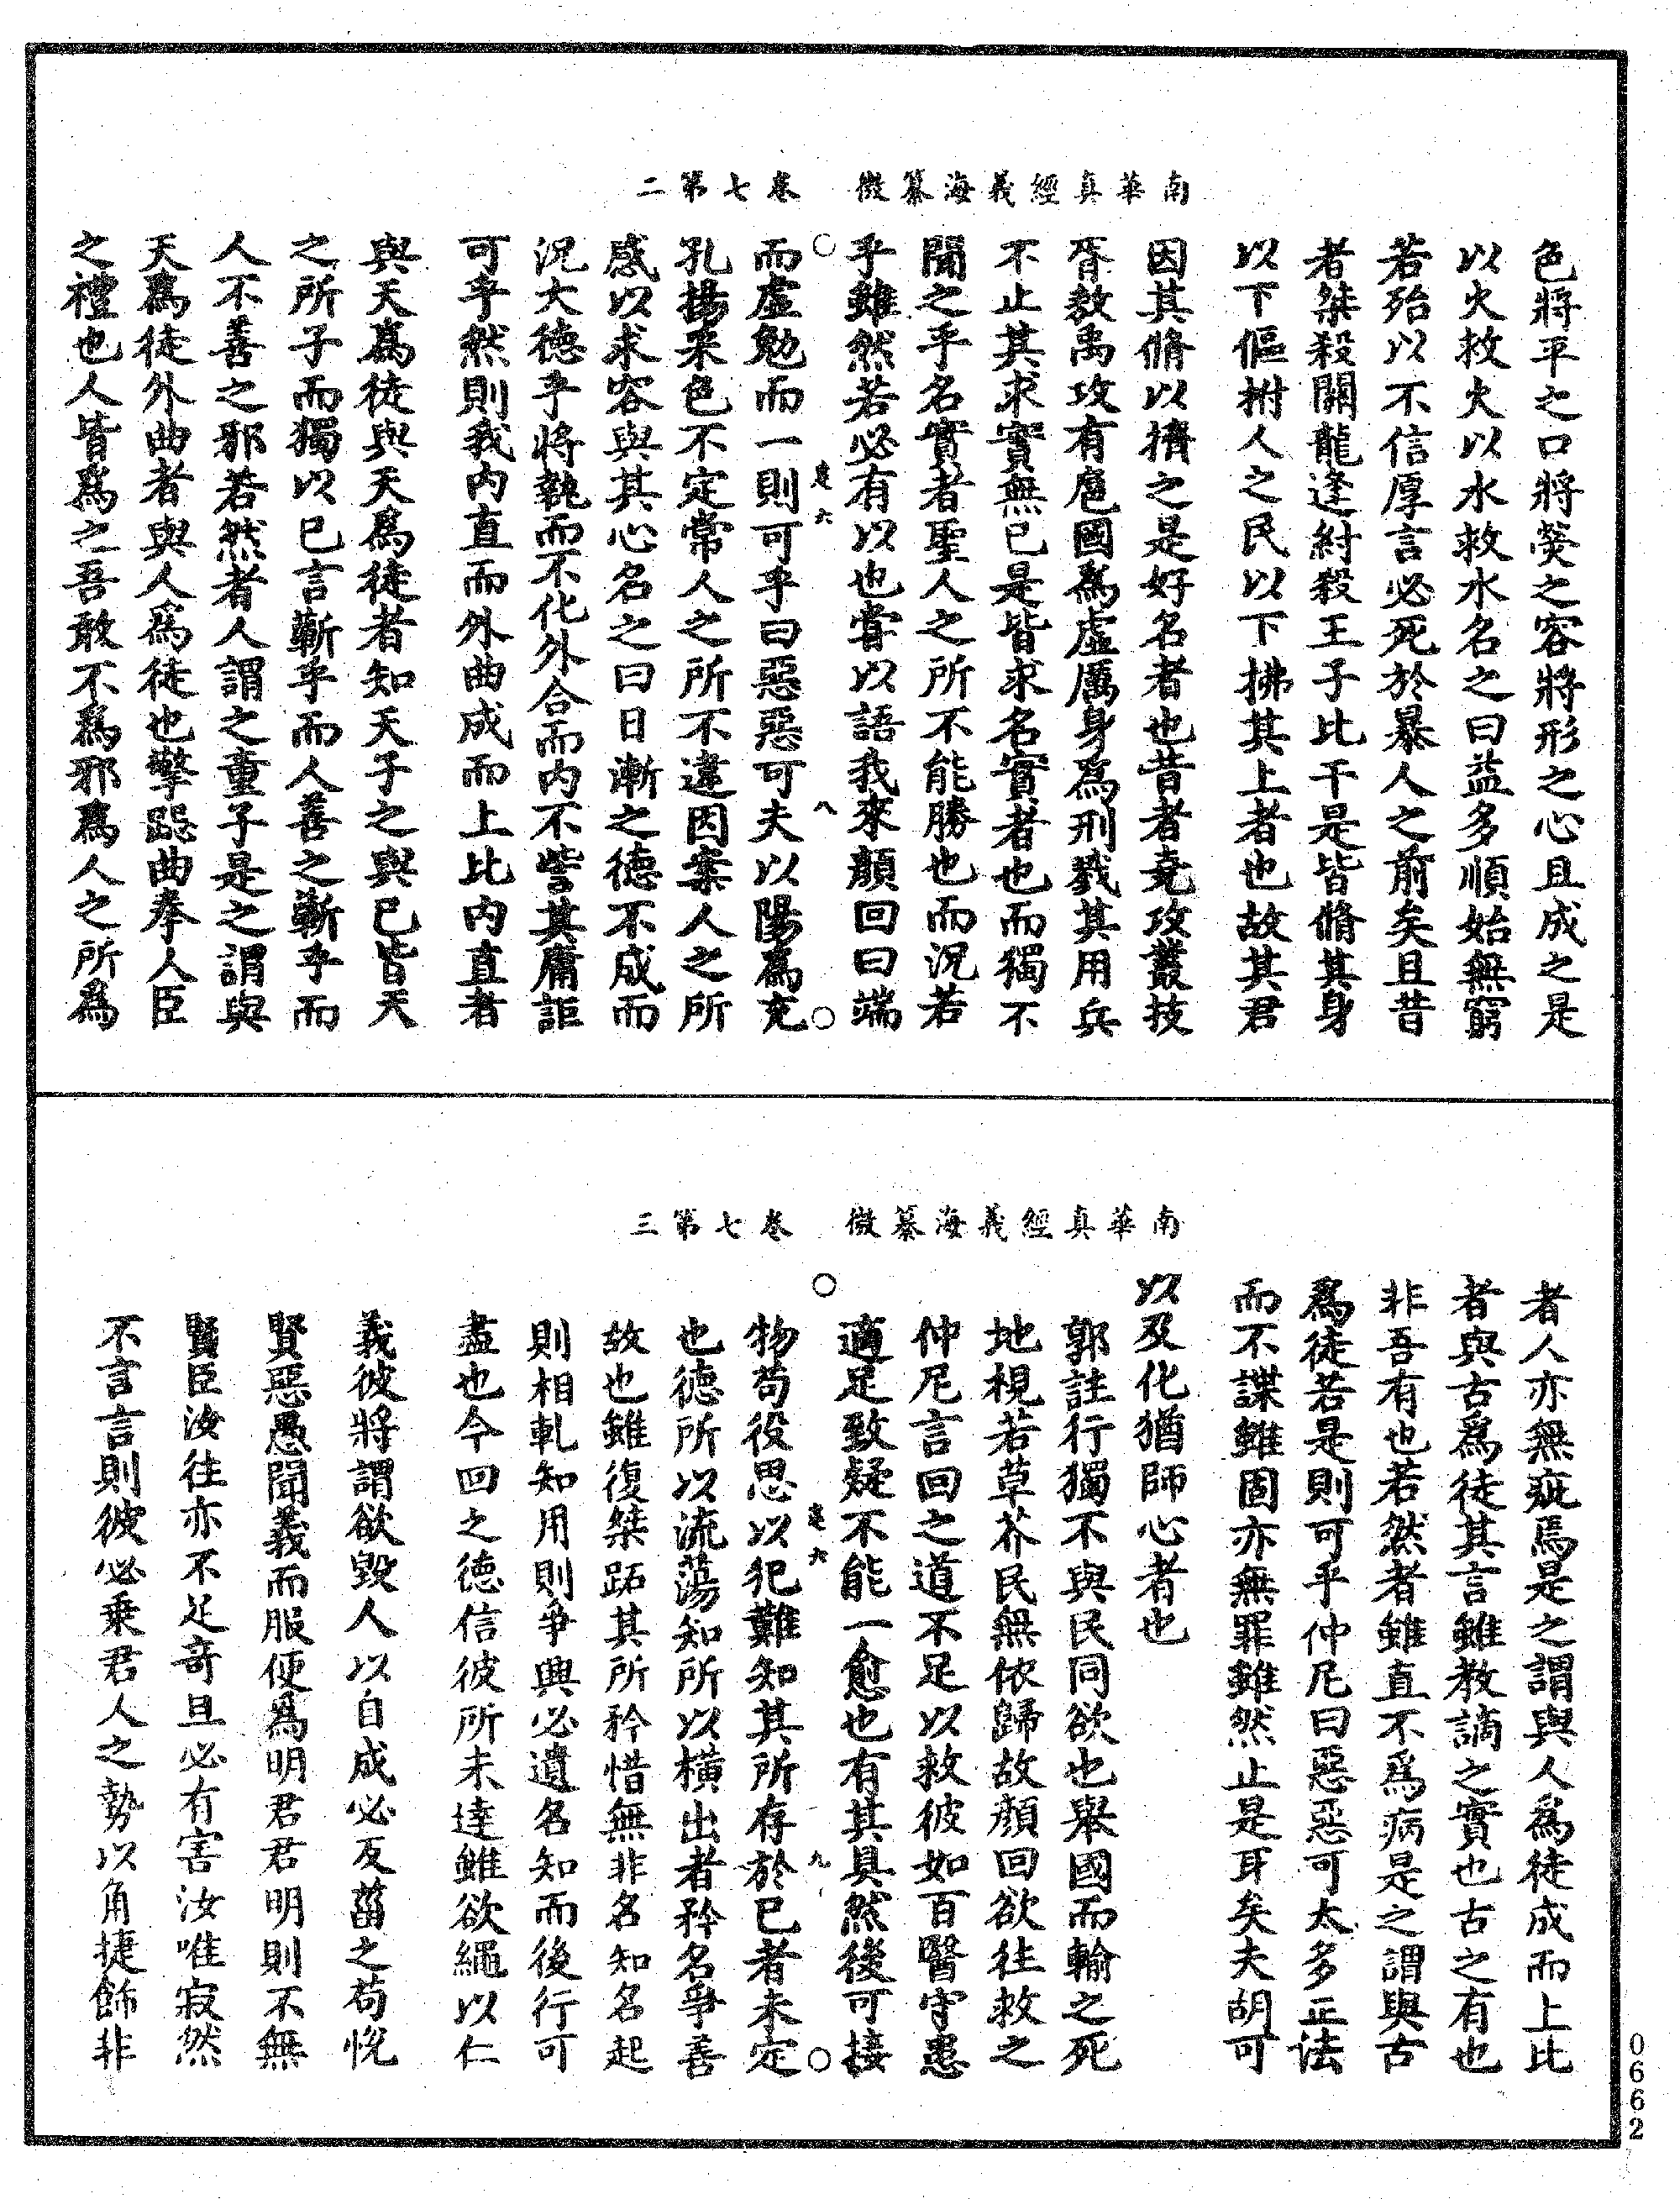 南華真經義海纂微 卷七第二
色將平之口將熒之容將形之心且成之是
以火救火以水救水名之曰益多順始無窮
若殆以不信厚言必死於暴人之前矣且昔
者桀殺關龍逢紂殺王子比干是皆脩其身
以下傴拊人之民以下拂其上者也故其君
因其脩以擠之是好名者也昔者堯攻叢技
胥敖禹攻有扈國為虛厲身為刑戮其用兵
不止其求實無已是皆求名實者也而獨不
聞之乎名實者聖人之所不能勝也而況若
乎雖然若必有以也嘗以語我來顏回曰端
而虛勉而一則可乎曰惡惡可夫以陽為充
孔揚采色不定常人之所不違因案人之所
感以求容與其心名之曰日漸之德不成而
況大德乎將執而不化外合而內不訾其庸詎
可乎然則我內直而外曲成而上比內直者
與天為徒與天為徒者知天子之與己皆天
之所子而獨以己言蘄乎而人善之蘄乎而
人不善之邪若然者人謂之童子是之謂與
天為徒外曲者與人為徒也擎跽曲拳人臣
之禮也人皆為之吾敢不為邪為人之所為
南華真經義海纂微 卷七第三
者人亦無疵焉是之謂與人為徒成而上比
者與古為徒其言雖教謫之實也古之有也
非吾有也若然者雖直不為病是之謂與古
為徒若是則可乎仲尼曰惡惡可太多正法
而不諜雖固亦無罪雖然止是耳矣夫胡可
以及化猶師心者也
郭註行獨不與民同欲也舉國而輸之死
地視若草芥民無依歸故顏回欲往救之
仲尼言回之道不足以救彼如百醫守患
適足致疑不能一愈也有其具然後可接
物苟役思以犯難知其所存於己者未定
也德所以流蕩知所以橫出者矜名爭善
故也雖復桀跖其所矜惜無非名知名起
則相軋知用則爭興必遺名知而後行可
盡也今回之德信彼所未達雖欲繩以仁
義彼將謂欲毀人以自成必反菑之苟悅
賢惡愚聞義而服便為明君君明則不無
賢臣汝往亦不足奇且必有害汝唯寂然
不言言則彼必乘君人之勢以角捷飾非
0662